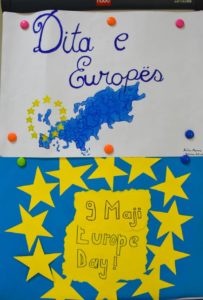 Dita e
Europës
9 Maji
Europe
Day!